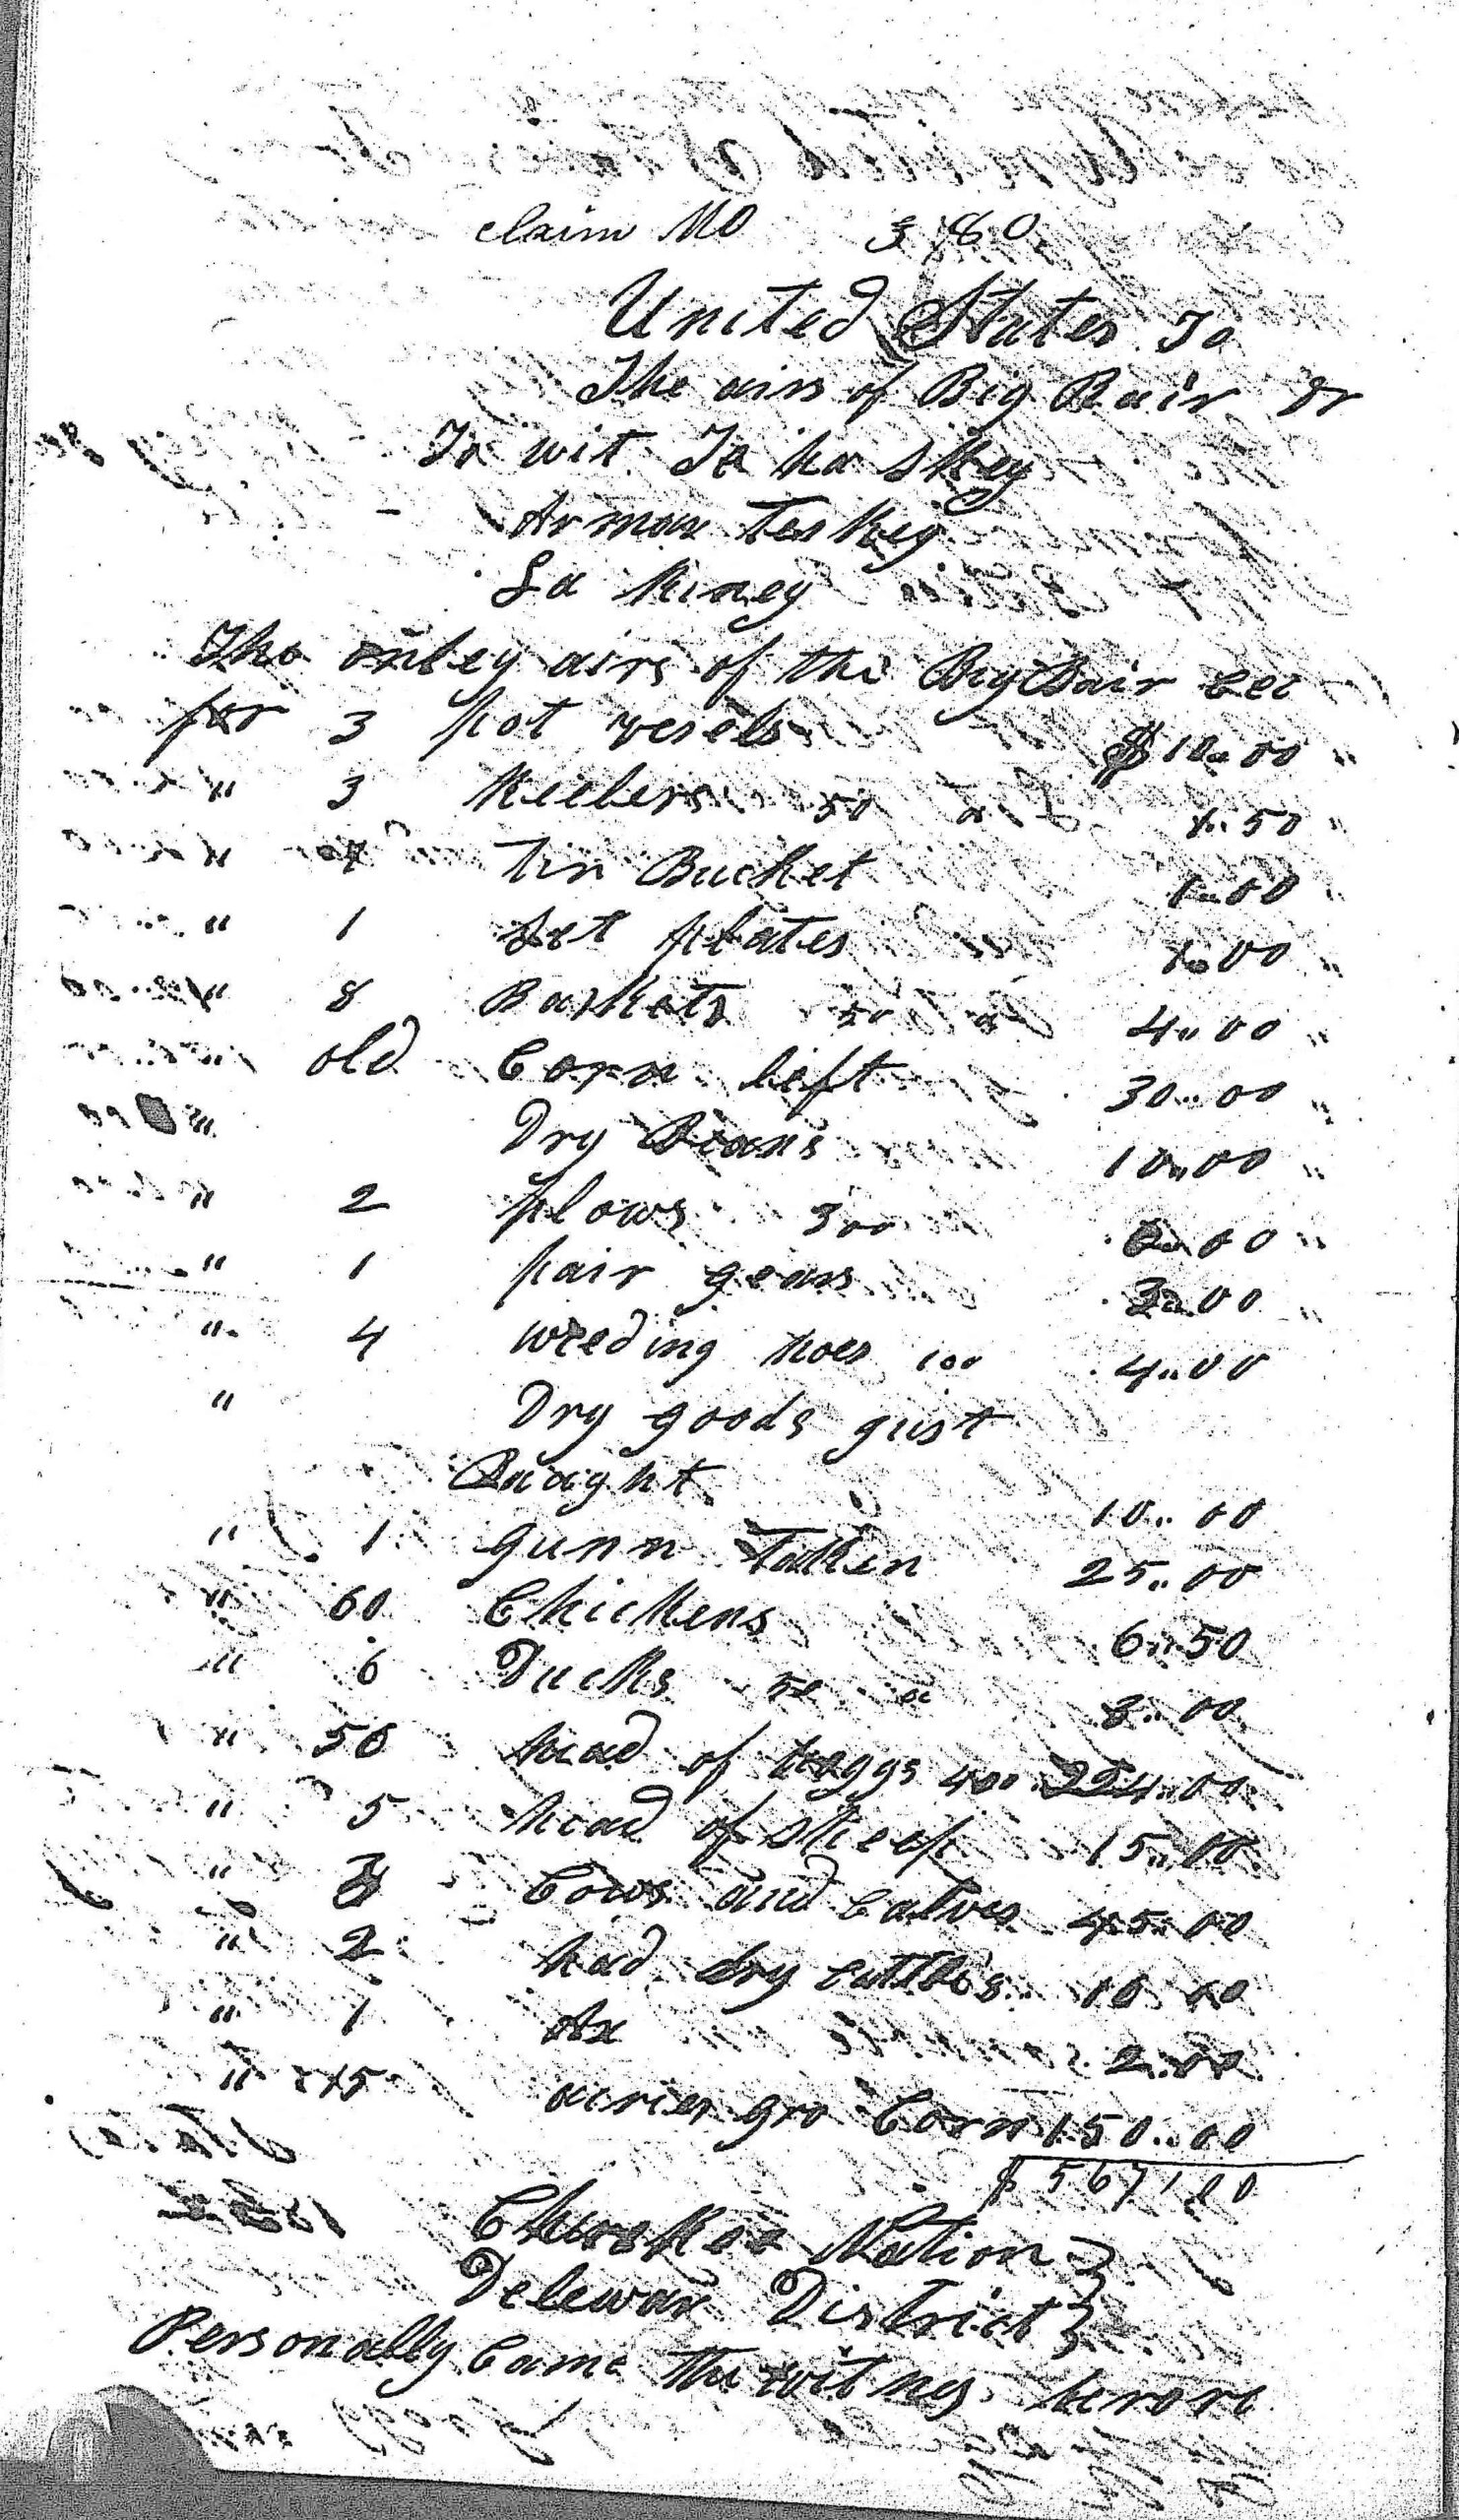 claim No 380
United States To
The airs of Big Bair Dr
To wit Ta ka skey
Teskey
La kiney
The onley airs of the Big Bair Dec
for 3 pot vesels $10..00
" 3 Keelers 50 1..50
" Tin Bucket 1..00
" 1 Set plates 1..00
" 8 Baskets 50 4..00
old Corn left 30..00
" Dry Beans 10..00
" 2 plows 300 6..00
" 1 pair gears 3..00
" 4 weeding hoes 100 4..00
" Dry goods gust
Baught 10..00
" 1 gunn Taken 25..00
" 60 Chickens 6..50
" 6 Ducks 50 3..00
" 56 head of hoggs 400 224..00
" 5 head of sheep 15..00
" 3 Cows and Calves 45..00
" 2 had dry cattles 10..00
" 1 Ax 2..00
" 15 acries gro Corn 150..00
$ 567,00
Cherokee Nation }
Delewar District }
Personally Came the witnes